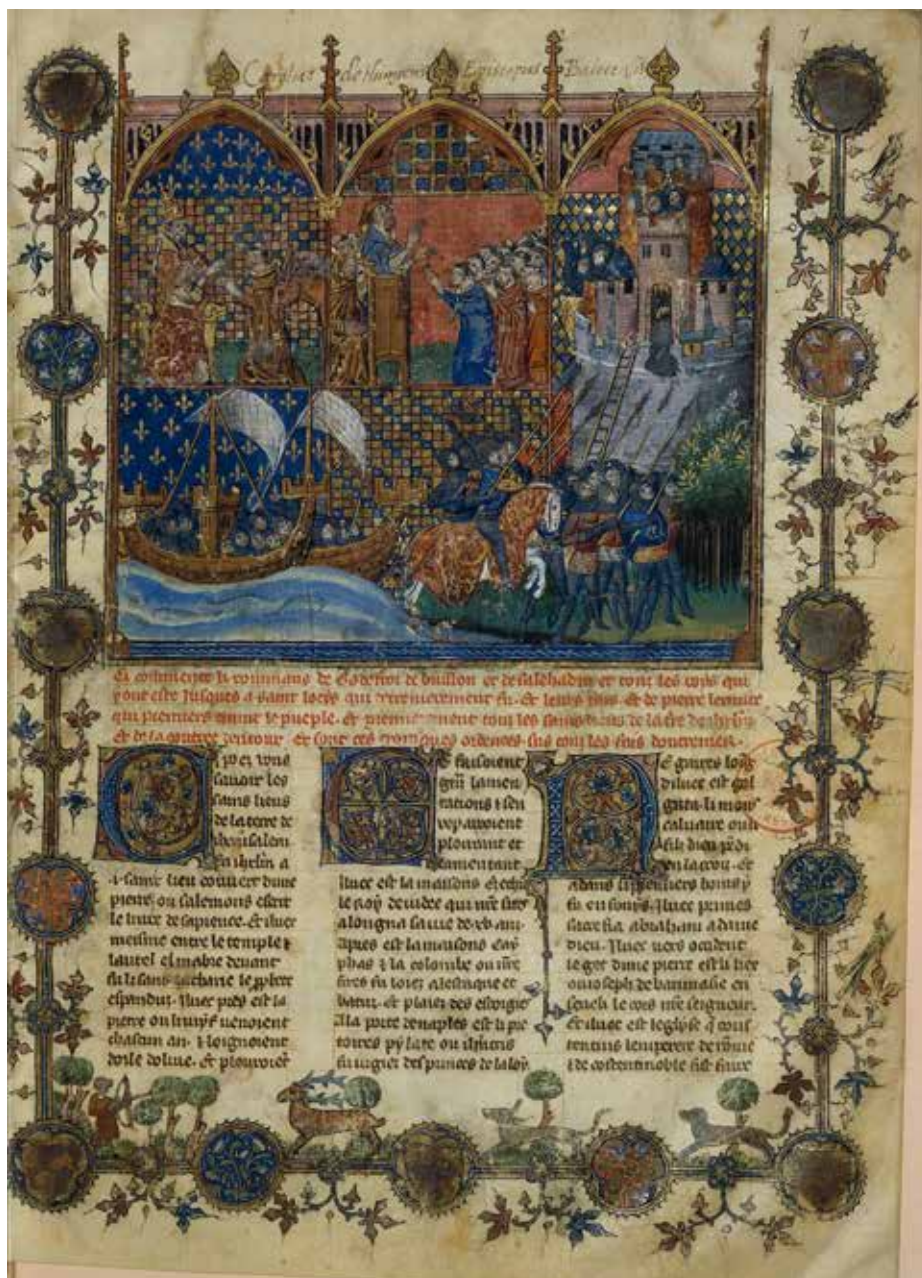 Carolus de Humieres Episcopus Baioce
Ci commence li roumans de Godefroi de buillon et de salehadin et de touz les roys qui
jusques a saint loeys qui derrenierement fu. Et de pierre lermite
qui premiers esmut le pueple. Et premierement touz les sains lieus de la
Et de la contree dentour. Et sont ces croniques ordenees sus touz les fais doutremer.
savoir les
sains lieus
de la terre de
iherusalem
En ihrlm a
.i. saint lieu couvert dune
pierre. ou salemons escrit
le livre de sapience. Et iluec
meisme entre le temple &
lautel el mabre devant
espandu. Iluec pres est la
pierre ou li iuyf venoient
chascun an. & loignoient
doile dolive. Et plouroient
faisoient
grant lamen
tations & sen
plourant et
lamentant.
Iluec est la maisons Ezechie
le roy de iudee qui nostre sires
alongna sa vie de .xv. ans
Apres est la maisons cay
phas & la colombe ou nostre
sires fu loiez a lestaque et
batuz. Et plaiez des escorgiees
A la porte de naples est li pre
toires pylate ou ihesus
fu iugiez des princes de la loy.
E gaires loig
diluec est gol
gata. li mons
calvaire ou li
filz dieu
en la croiz. Et
adans li premiers homs y
fu enfouys. Iluec primes
sacrefia abraham a dame
dieu. Iluec vers occident
le get dune pierre est li lieus
ou ioseph de barimacie en
seveli le cors nostre seigneur.
Et iluec est leglyse que cous
tentins lemperere de rome
& de costentinoble fist faire